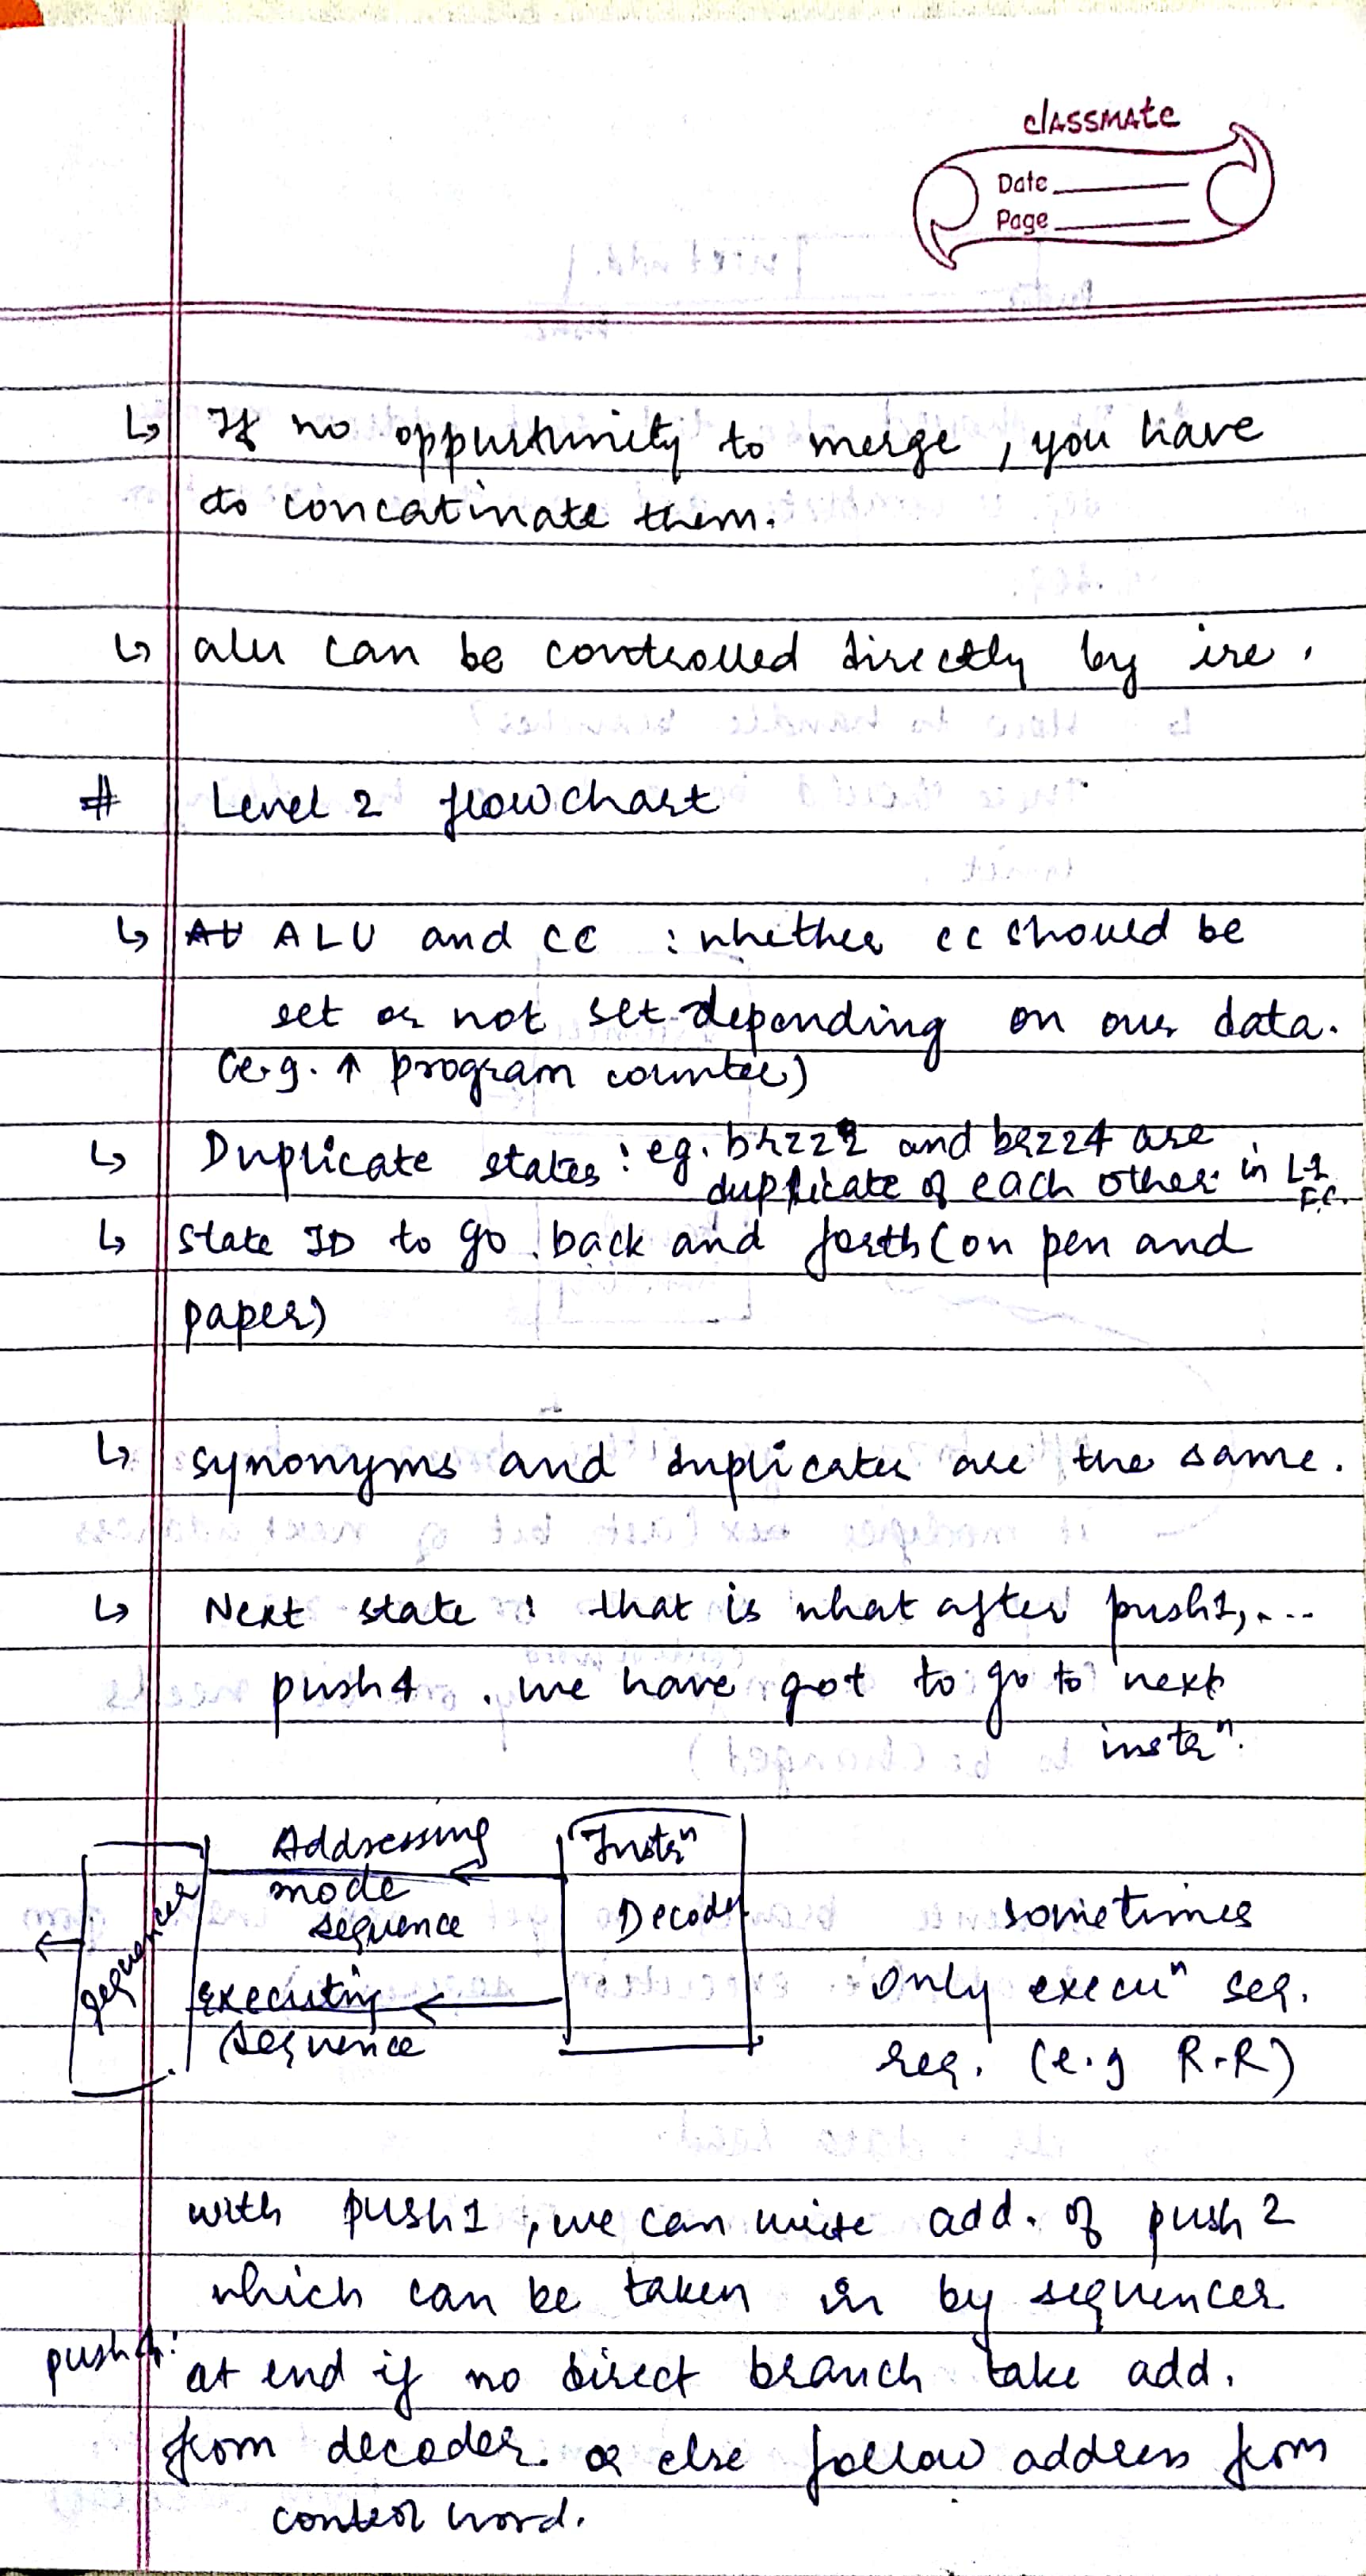 classmate
Date
Page
↳ If no oppurtunity to merge, you have
to concatinate them.
↳ alu can be controlled directly by ire.
# Level 2 flowchart
↳ ALU and CC : whether cc should be
set or not set depending on our data.
(e.g. ↑ program counter)
↳ Duplicate states : eg. brzz2 and brzz4 are
duplicate of each other in L-1
F.C.
↳ state ID to go back and forth (on pen and
paper)
↳ synonyms and duplicates are the same.
↳ Next state : that is what after push1, ...
push4 . we have got to go to next
instrⁿ.
Sequencer
Addressing
mode
sequence
executing
sequence
Instrⁿ
Decoder
sometimes
only execuⁿ seq.
req. (e.g R-R)
with push1, we can write add. of push2
which can be taken in by sequencer
push4: at end if no direct branch take add.
from decoder or else follow address from
control word.